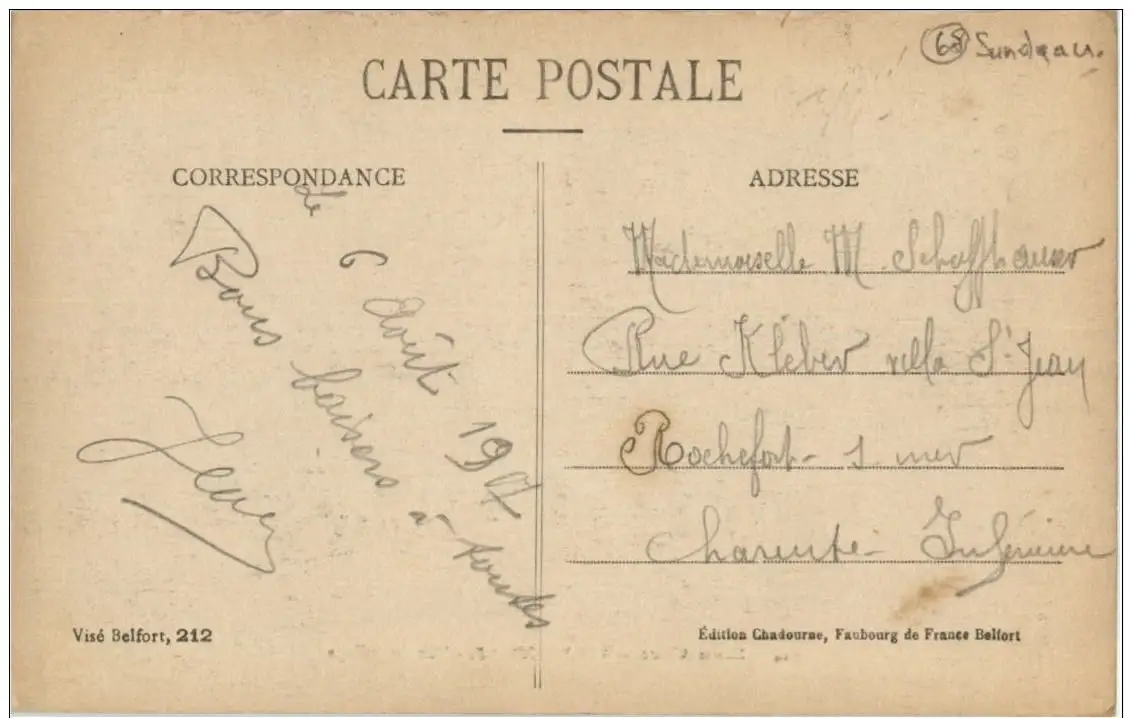 68 Sundgau.
CARTE POSTALE
CORRESPONDANCE
le 6 Août 1917
Bons baisers à toutes
ADRESSE
Mademoiselle M. Schaffhauser
Rue Kléber villa St Jean
Rochefort - s mer
Charente - Inférieure
Visé Belfort, 212
Édition Chadourne, Faubourg de France Belfort